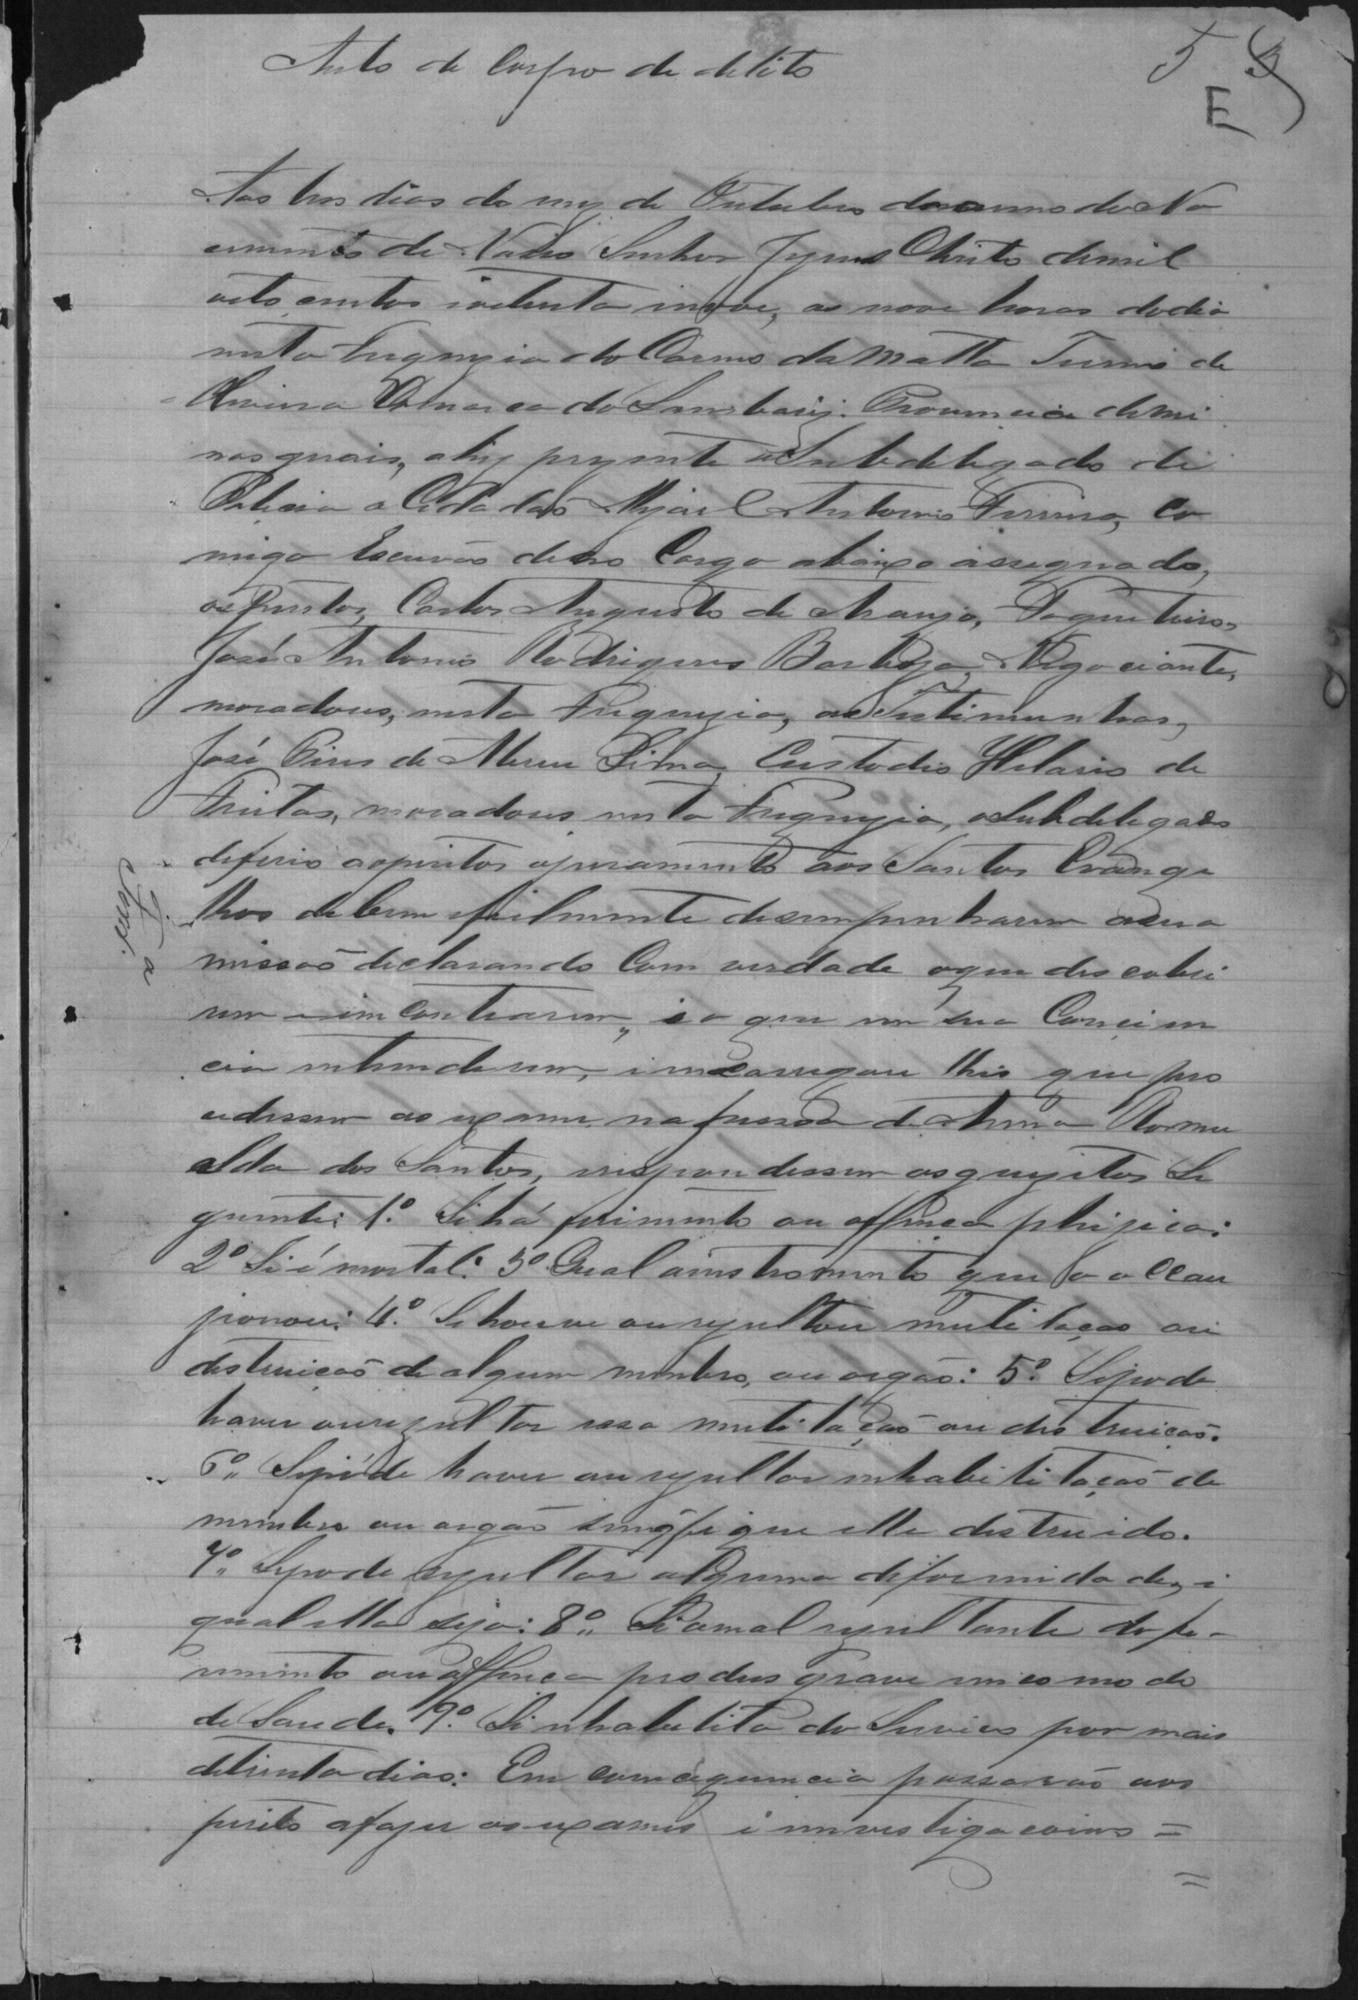 Auto de Corpo de delito
5
E
Aos tres dias do mez de Outubro do anno do Na
cimento de Nosso Senhor Jezus Christo de mil
oito centos ioitenta inove, as nove horas do dia
nesta Freguezia do Carmo da Matta Termo de
Oliveira Comarca do Province de Mi
nas gerais, ahy prezente o Subdelegado de
Policia o Cidadaõ Antonio Ferreira, Co
migo Escrivaõ de seo Cargo abaixo assegnado,
os Peritos, Carlos Augusto de Araujo, Fogueteiro,
José Antonio Rodrigues Barboza, Negociante,
moradores, nesta Freguezia, as Testimunhas,
José Pires de Lima, Custodio Hilario de
Freitas, moradores nesta Freguezia, o Subdelegado
deferio aos peritos o juramento aos Santos Evange
lhos de bem e fielmente desempenharem a sua
missaõ declarando Com verdade o que descobri
rem e incontrarem, e o que em sua Concien
cia entenderem, i incarregou lhis que pro
cedessem ao exame na pessoa de Anna Romu
alda dos Santos, respondessem os quezitos Se
guinte: 1.º Si há ferimento ou offinça phizica:
2.º Si é mortal: 3.º Qual o instromento que o occau
zionou: 4.º Si houve ou rezultou mutilaçaõ ou
distruicaõ de algum membro, ou orgaõ: 5.º Si pode
haver ou rezultar essa mutilaçaõ ou distruicaõ.
6.º Si póde haver ou rezultar inhabilitaçaõ de
membro ou orgaõ sem q fique elle distruido.
7.º Si pode rezultar alguma deformidade, i
qual ella seja: 8.º Si o mal rezultante do fe-
rimento ou offinça produs grave incomodo
de Saude. 9.º Si inhabilita do Servico por mais
de trinta dias: Em concequencia passaraõ aos
perito a fazer os exames i investigacoins =
=